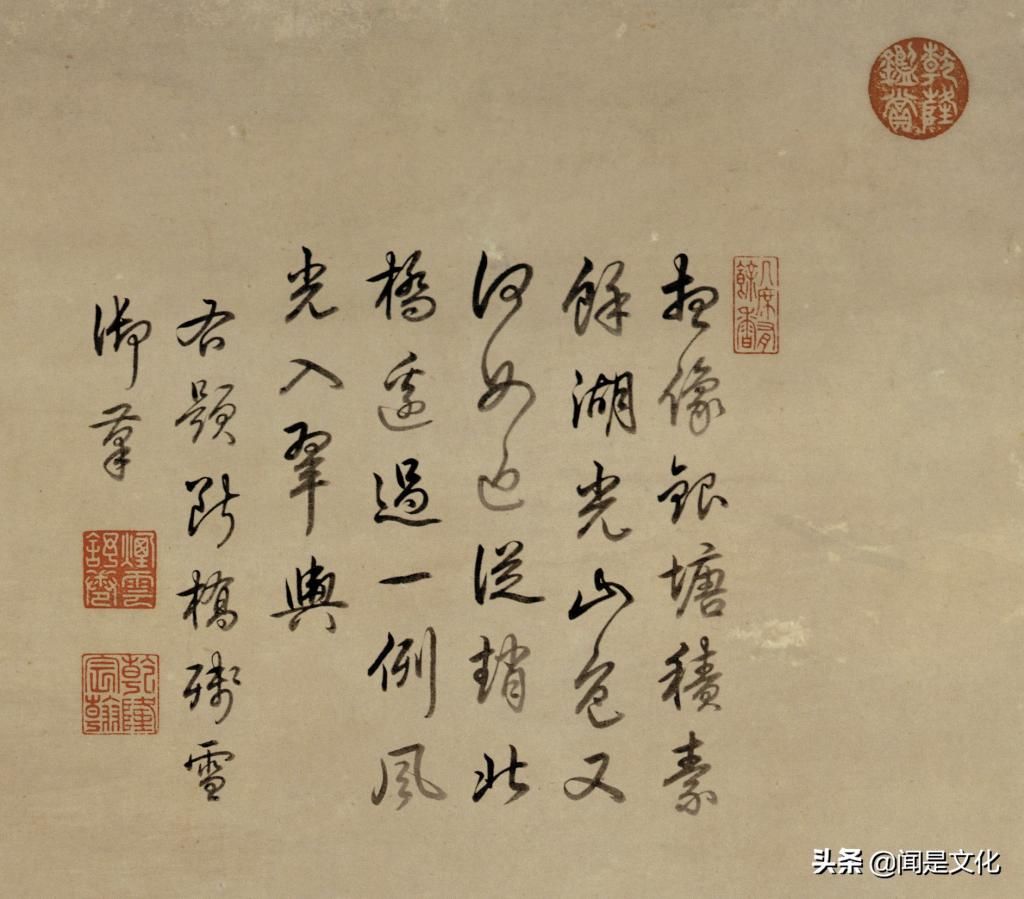 乾隆
鑑賞
几席有
餘香
想像銀塘積素
餘湖光山色又
何如近從趙北
橋邊過一例風
光入翠輿
右題斷橋殘雪
御筆
煙雲
舒卷
乾隆
宸翰
头条 @闻是文化